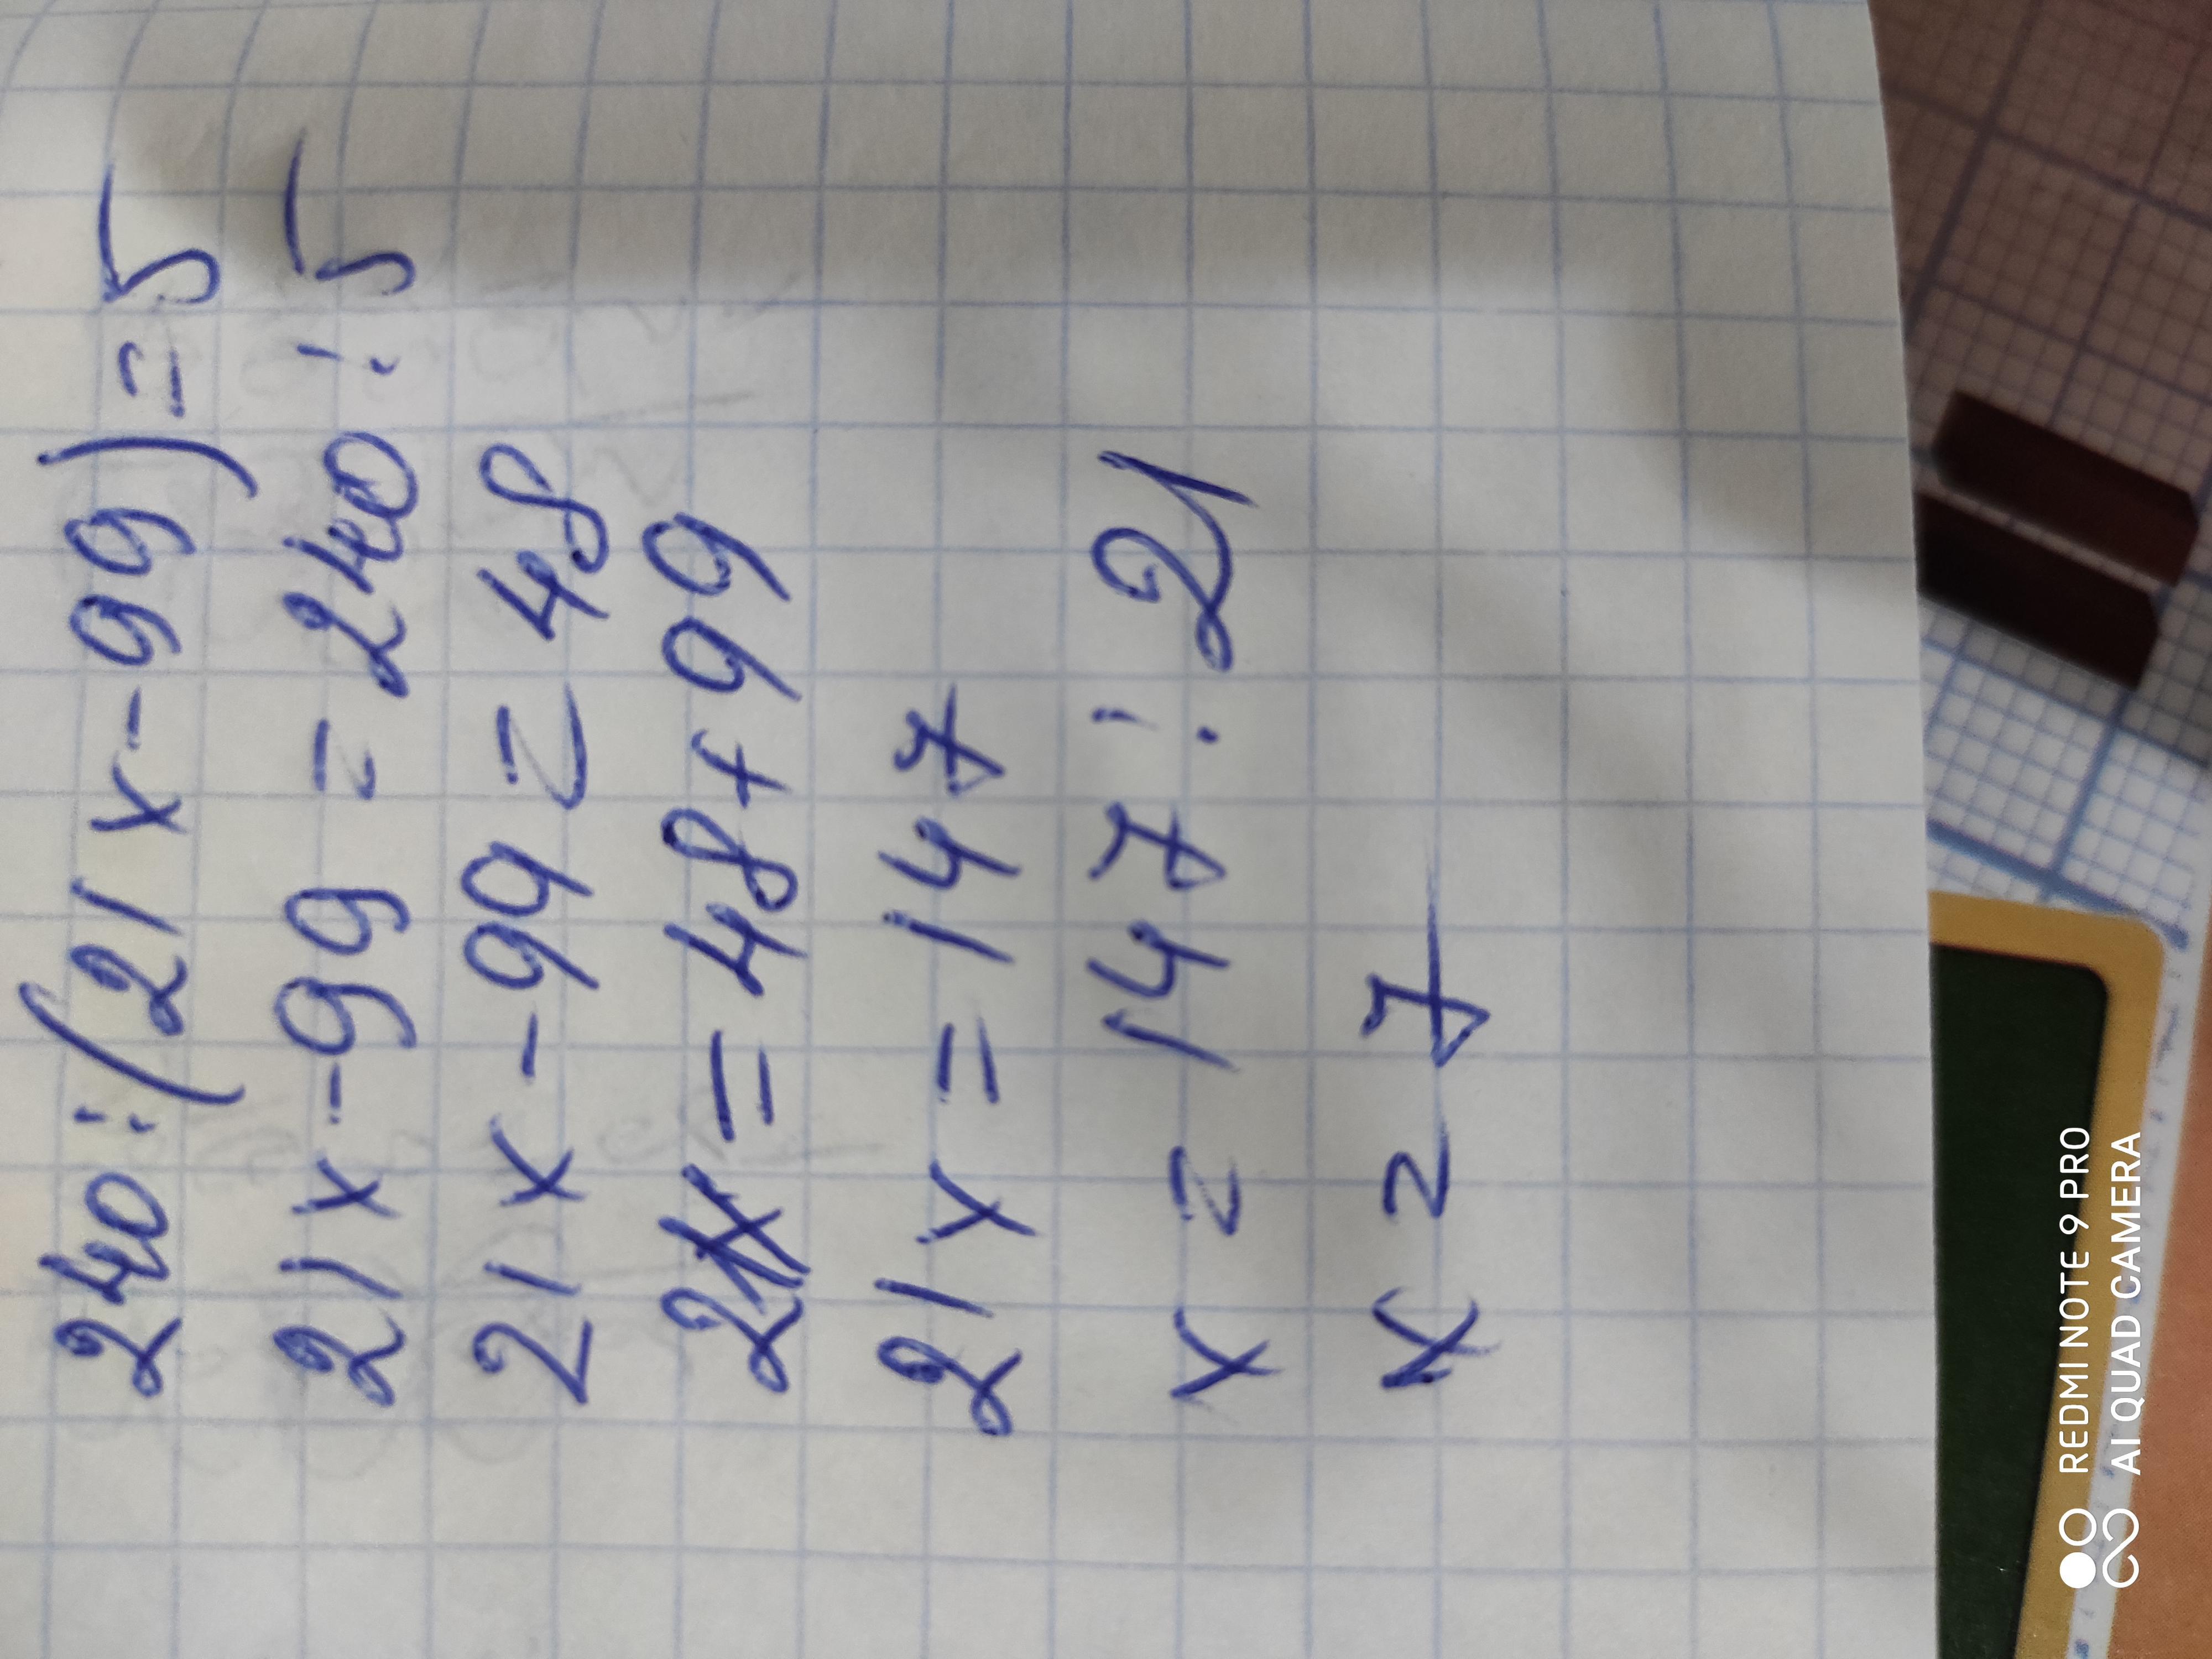 240:(21x-99)=5
21x-99=240:5
21x-99=48
21x=48+99
21x=147
x=147:21
x=7
REDMI NOTE 9 PRO
AI QUAD CAMERA